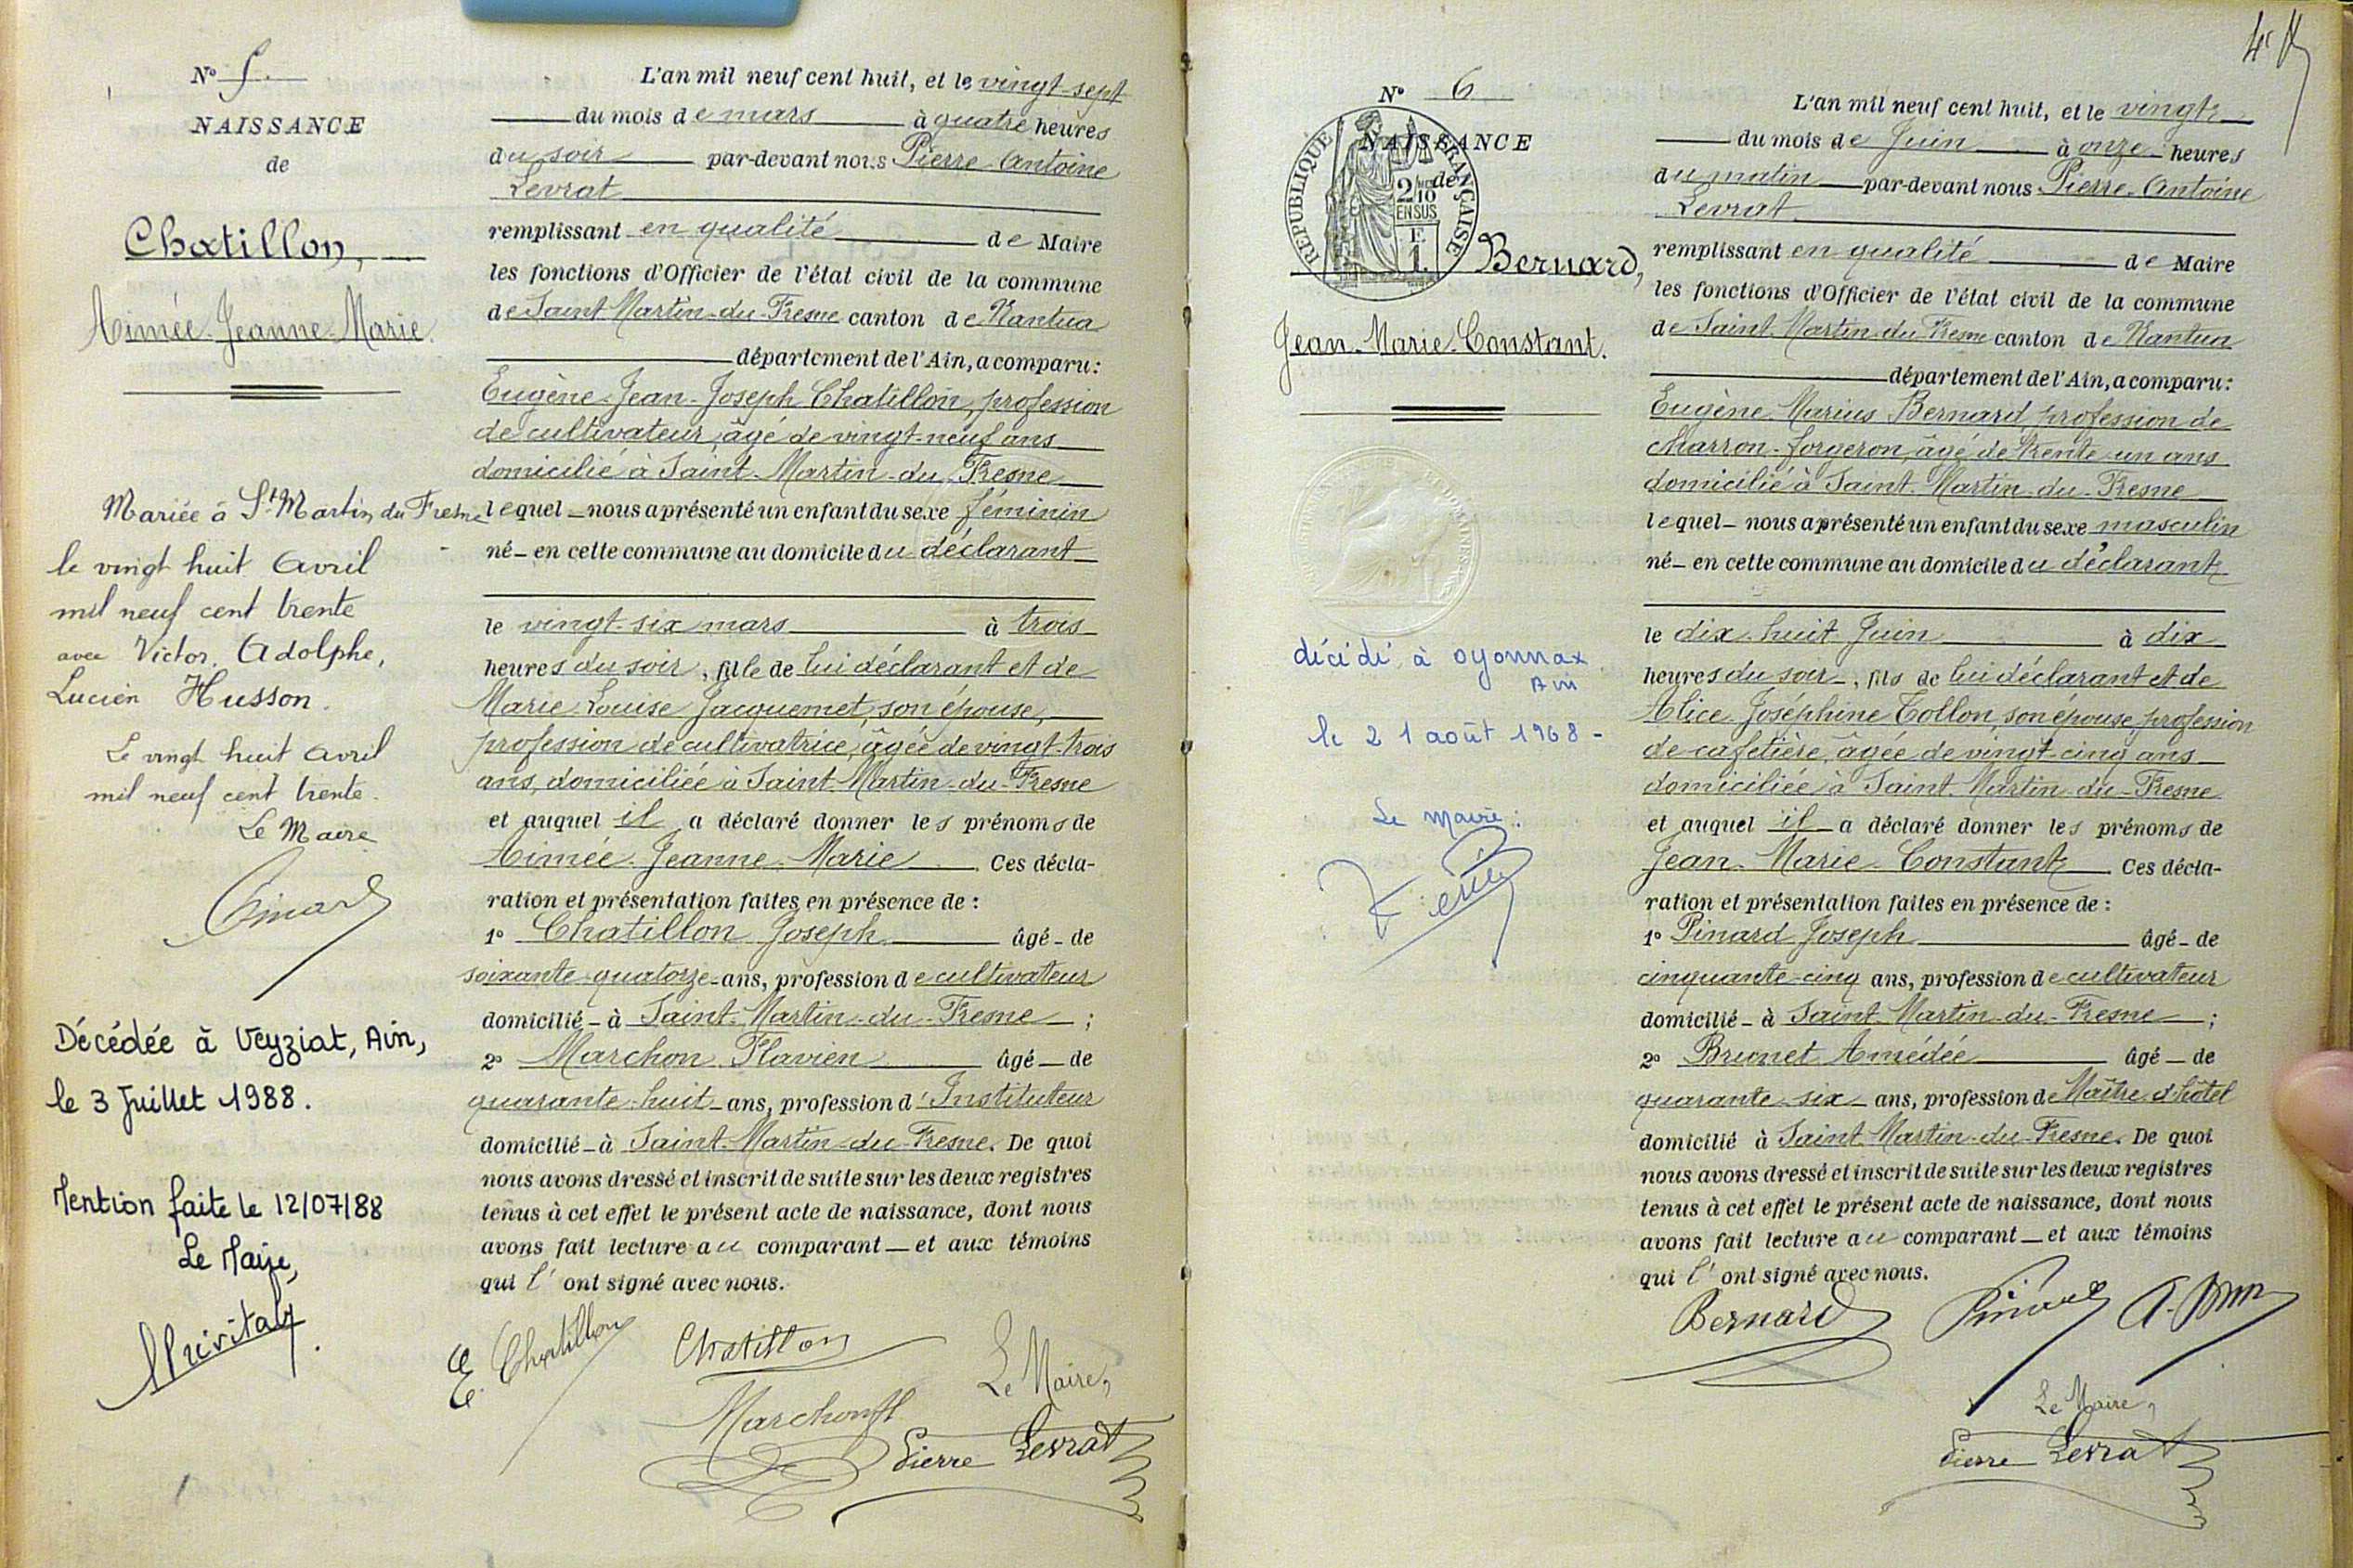 N° 5.
NAISSANCE
de
Chatillon,
Aimée Jeanne Marie.
Mariée à St Martin du Fresne
le vingt huit Avril
mil neuf cent trente
avec Victor, Adolphe,
Lucien Husson.
Le vingt huit avril
mil neuf cent trente.
Le Maire
Pinard
Décédée à Veyziat, Ain,
le 3 Juillet 1988.
Mention faite le 12/07/88
Le Maire,
L'an mil neuf cent huit, et le vingt-sept
du mois de mars à quatre heures
du soir par-devant nous Pierre-Antoine
Levrat
remplissant en qualité de Maire
les fonctions d'Officier de l'état civil de la commune
de Saint-Martin-du-Fresne canton de Nantua
département de l'Ain, a comparu:
Eugène-Jean-Joseph Chatillon, profession
de cultivateur, âgé de vingt-neuf ans
domicilié à Saint-Martin-du-Fresne
lequel nous a présenté un enfant du sexe féminin
né en cette commune au domicile du déclarant
le vingt-six mars à trois
heures du soir, fille de lui déclarant et de
Marie-Louise Jacquemet, son épouse,
profession de cultivatrice, âgée de vingt-trois
ans, domiciliée à Saint-Martin-du-Fresne
et auquel il a déclaré donner les prénoms de
Aimée-Jeanne-Marie Ces décla-
ration et présentation faites en présence de :
1° Chatillon Joseph âgé de
soixante-quatorze ans, profession de cultivateur
domicilié à Saint-Martin-du-Fresne ;
2° Marchon Flavien âgé de
quarante-huit ans, profession d'Instituteur
domicilié à Saint-Martin-du-Fresne. De quoi
nous avons dressé et inscrit de suite sur les deux registres
tenus à cet effet le présent acte de naissance, dont nous
avons fait lecture au comparant et aux témoins
qui l' ont signé avec nous.
E. Chatillon Chatillon
Le Maire,
Marchon fl
Pierre Levrat
N° 6
NAISSANCE
de
REPUBLIQUE FRANÇAISE
2/10
EN SUS
F.
1.
Bernard,
Jean-Marie-Constant.
décédé à oyonnax
Ain
le 21 août 1968 -
Le maire :
L'an mil neuf cent huit, et le vingt
du mois de Juin à onze heures
du matin par-devant nous Pierre-Antoine
Levrat
remplissant en qualité de Maire
les fonctions d'Officier de l'état civil de la commune
de Saint-Martin-du-Fresne canton de Nantua
département de l'Ain, a comparu:
Eugène-Marius Bernard, profession de
charron-forgeron, âgé de trente-un ans
domicilié à Saint-Martin-du-Fresne
lequel nous a présenté un enfant du sexe masculin
né en cette commune au domicile du déclarant
le dix-huit Juin à dix
heures du soir, fils de lui déclarant et de
Alice-Joséphine Tollon, son épouse, profession
de cafetière, âgée de vingt-cinq ans
domiciliée à Saint-Martin-du-Fresne
et auquel il a déclaré donner les prénoms de
Jean-Marie-Constant Ces décla-
ration et présentation faites en présence de :
1° Pinard Joseph âgé de
cinquante-cinq ans, profession de cultivateur
domicilié à Saint-Martin-du-Fresne ;
2° Brunet Amédée âgé de
quarante-six ans, profession de Maître d'hôtel
domicilié à Saint-Martin-du-Fresne. De quoi
nous avons dressé et inscrit de suite sur les deux registres
tenus à cet effet le présent acte de naissance, dont nous
avons fait lecture au comparant et aux témoins
qui l' ont signé avec nous.
Bernard Pinard
Le Maire,
Pierre Levrat